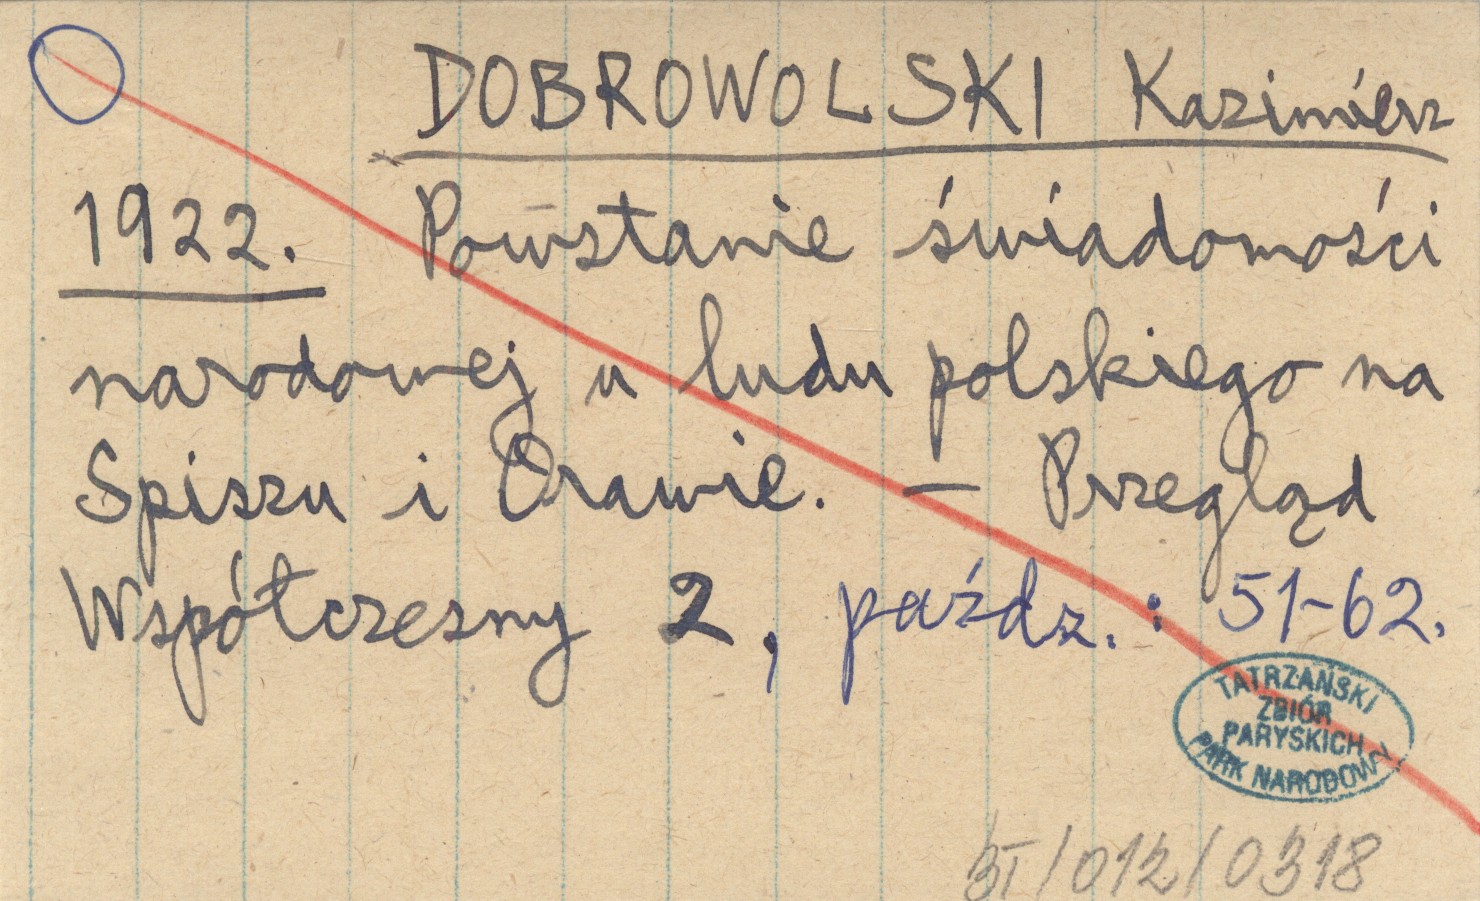 DOBROWOLSKI Kazimierz
1922. Powstanie świadomości
narodowej u ludu polskiego na
Spiszu i Orawie. — Przegląd
Współczesny 2, paźdz.: 51-62.
TATRZAŃSKI
ZBIÓR
PARYSKICH
PARK NARODOWY
/012/0318